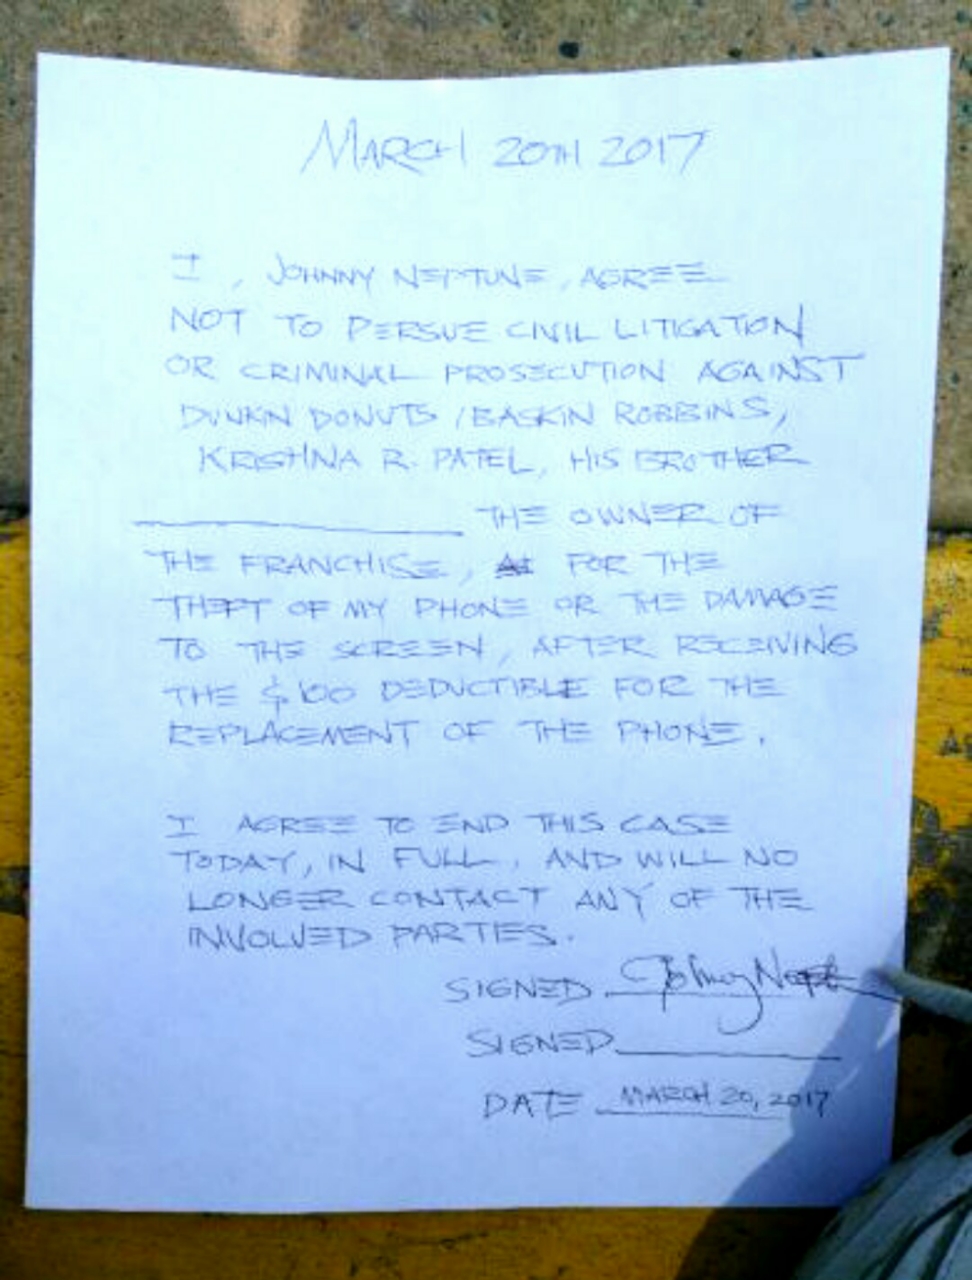 MARCH 20TH 2017
I, JOHNNY NEPTUNE, AGREE
NOT TO PERSUE CIVIL LITIGATION
OR CRIMINAL PROSECUTION AGAINST
DUNKIN DONUTS / BASKIN ROBBINS,
KRISHNA R. PATEL, HIS BROTHER
____________ THE OWNER OF
THE FRANCHISE, FOR THE
THEFT OF MY PHONE OR THE DAMAGE
TO THE SCREEN, AFTER RECEIVING
THE $100 DEDUCTIBLE FOR THE
REPLACEMENT OF THE PHONE.
I AGREE TO END THIS CASE
TODAY, IN FULL, AND WILL NO
LONGER CONTACT ANY OF THE
INVOLVED PARTIES.
SIGNED Johnny Nept
SIGNED____________
DATE MARCH 20, 2017